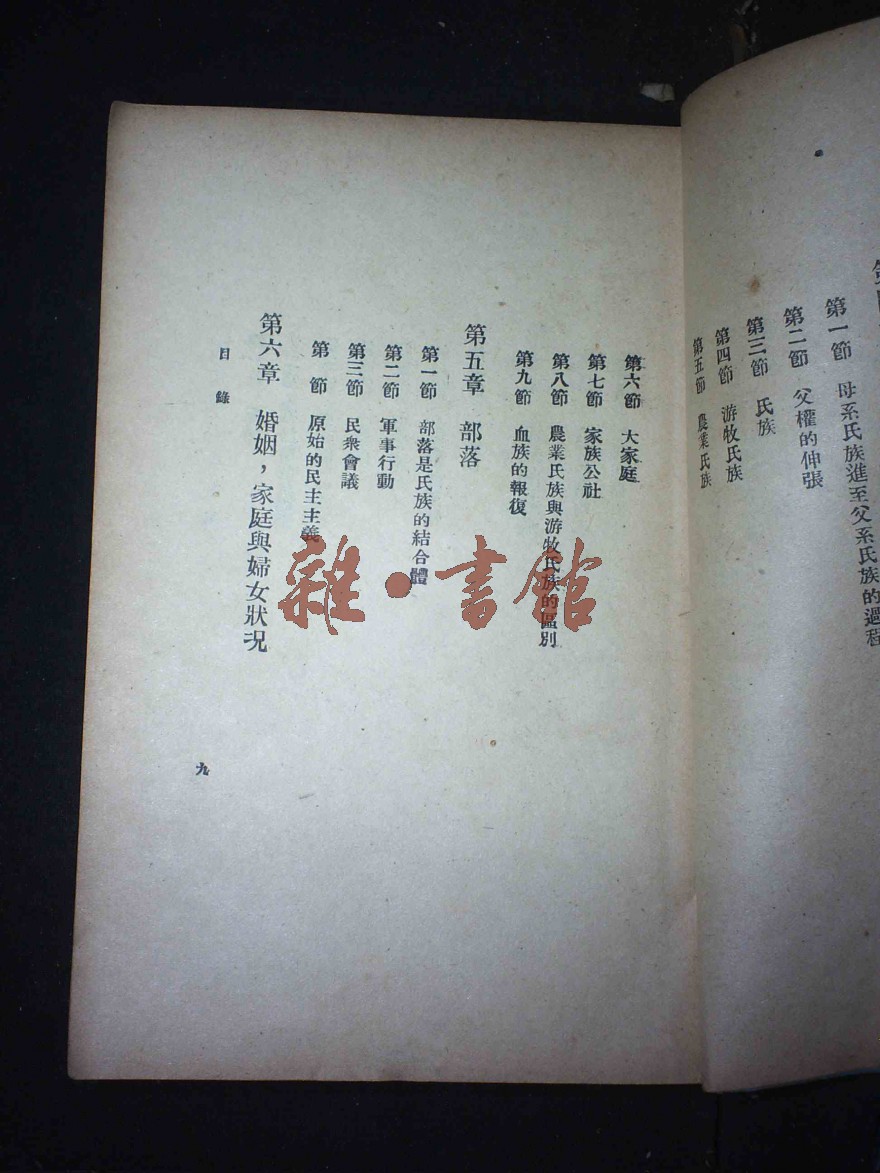 第一節 母系氏族進至父系氏族的過程
第二節 父權的伸張
第三節 氏族
第四節 游牧氏族
第五節 農業氏族
第六節 大家庭
第七節 家族公社
第八節 農業氏族與游牧氏族的區別
第九節 血族的報復
第五章 部落
第一節 部落是氏族的結合體
第二節 軍事行動
第三節 民衆會議
第 節 原始的民主主義
第六章 婚姻，家庭與婦女狀況
目錄
九
雜·書館